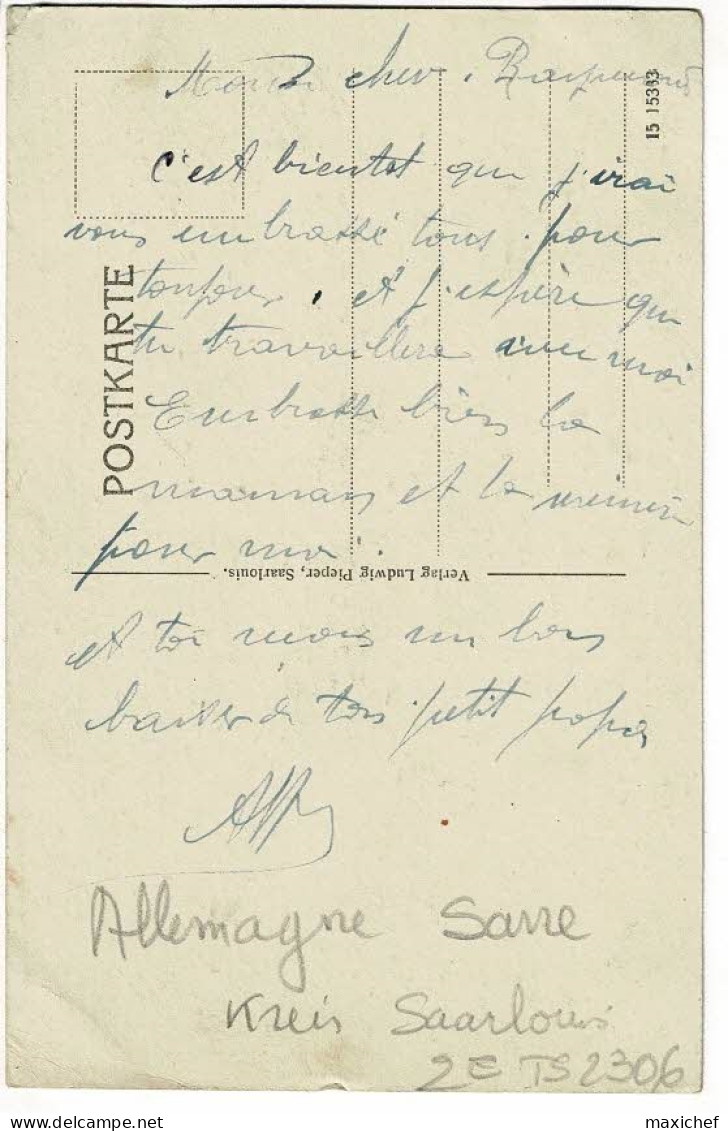 Mon cher Raymond
c'est bientot que j'irai
vous embrassé tous pour
toujours. et j'espère que
tu travaillera avec moi
Embrasse bien la
maman et la
pour moi.
et toi mon un bon
baiser de ton petit papa
POSTKARTE
15 15383
Verlag Ludwig Pieper, Saarlouis.
Allemagne Sarre
Kreis Saarlouis
2E TS 2306
maxichef